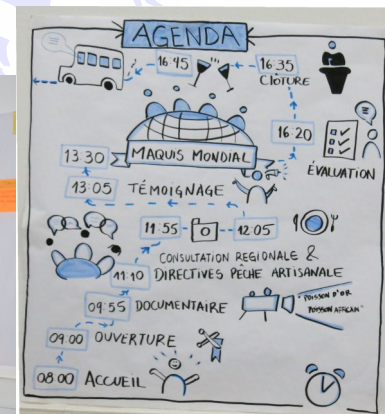 AGENDA
16:45
16:35
CLÔTURE
16:20
ÉVALUATION
13:30
MAQUIS MONDIAL
13:05 TÉMOIGNAGE
11:55
12:05
11:10
CONSULTATION REGIONALE &
DIRECTIVES PÊCHE ARTISANALE
09:55 DOCUMENTAIRE
"POISSON D'OR
POISSON AFRICAIN"
09:00 OUVERTURE
08:00 ACCUEIL